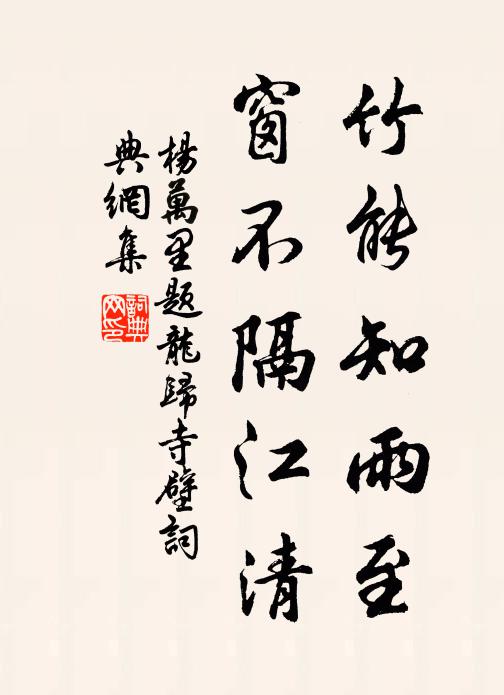 竹能知雨至
窗不隔江清
楊萬里題龍歸寺壁詞
典網集
詞典網印